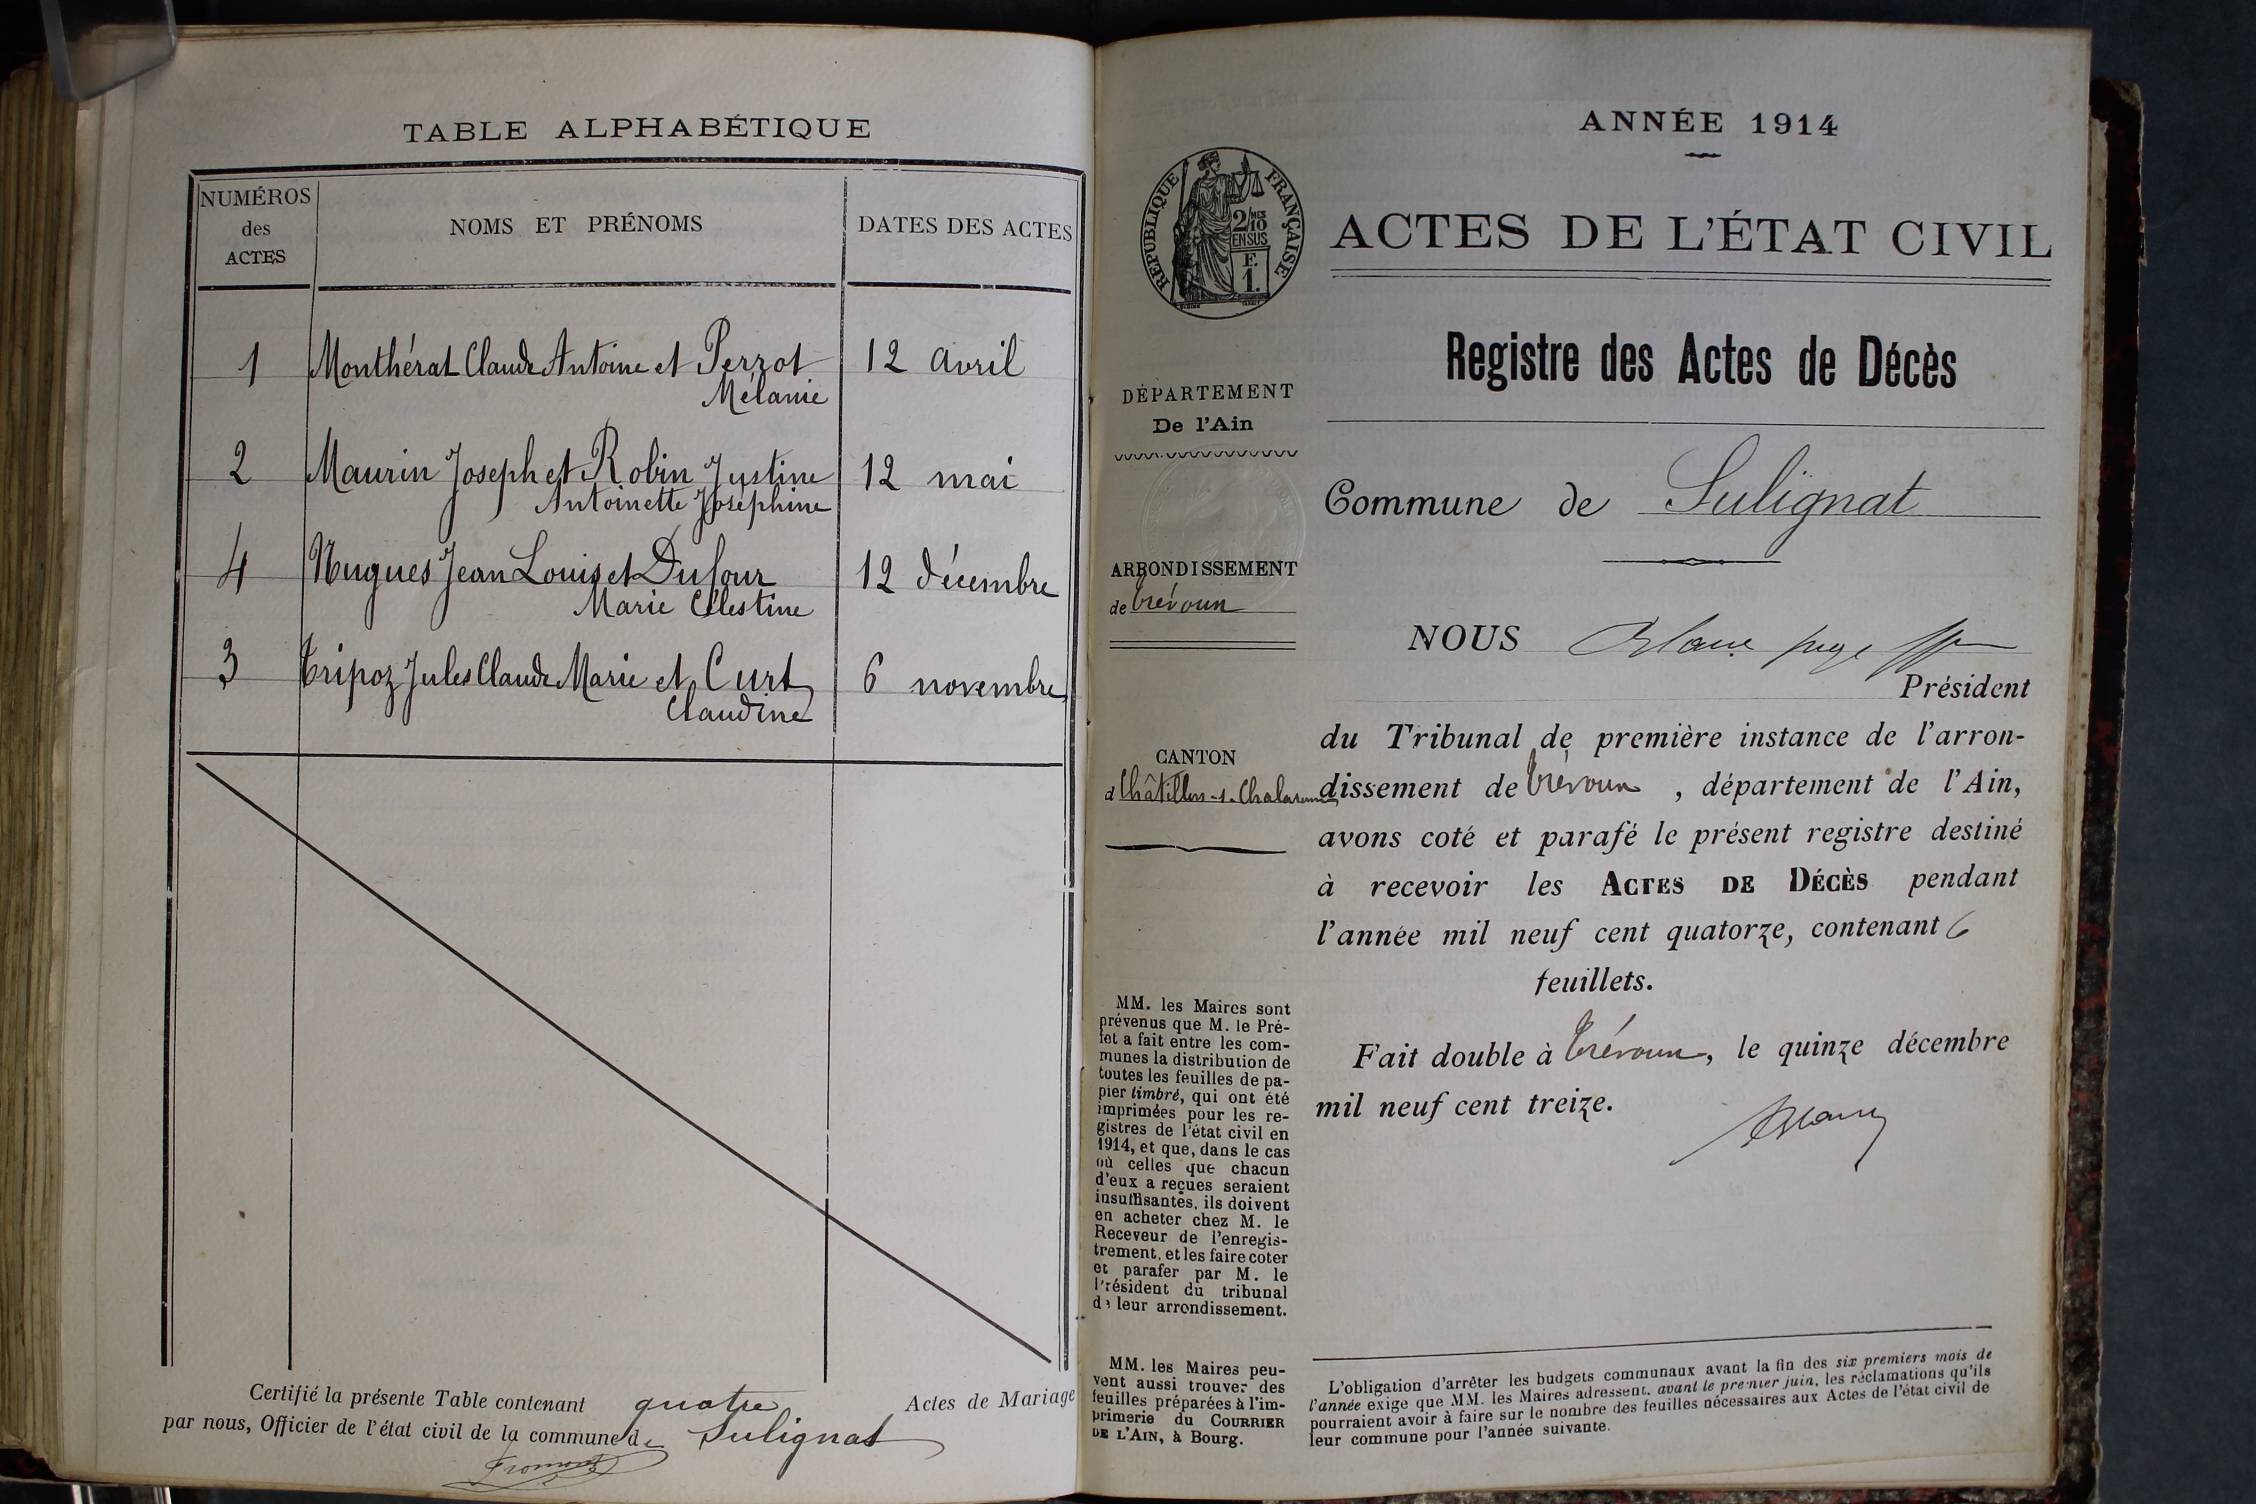 TABLE ALPHABÉTIQUE
NUMÉROS
des
ACTES
NOMS ET PRÉNOMS
DATES DES ACTES
1 Monthérat Claude Antoine et Perrot 12 avril
Mélanie
2 Maurin Joseph et Robin Justine 12 mai
Antoinette Joséphine
4 Nugues Jean Louis et Dufour 12 décembre
Marie Célestine
3 Tripoz Jules Claude Marie et Curt 6 novembre
Claudine
Certifié la présente Table contenant quatre Actes de Mariage
par nous, Officier de l'état civil de la commune de Sulignat
Fromont
ANNÉE 1914
RÉPUBLIQUE FRANÇAISE
2/10MES
EN SUS
F.
1.
ACTES DE L'ÉTAT CIVIL
Registre des Actes de Décès
DÉPARTEMENT
De l'Ain
Commune de Sulignat
ARRONDISSEMENT
de Trévoux
NOUS juge
Président
du Tribunal de première instance de l'arron-
dissement de Trévoux, département de l'Ain,
avons coté et parafé le présent registre destiné
à recevoir les ACTES DE DÉCÈS pendant
l'année mil neuf cent quatorze, contenant 6
feuillets.
Fait double à Trévoux, le quinze décembre
mil neuf cent treize.
CANTON
d Châtillon-s-Chalaronne
MM. les Maires sont
prévenus que M. le Pré-
fet a fait entre les com-
munes la distribution de
toutes les feuilles de pa-
pier timbré, qui ont été
imprimées pour les re-
gistres de l'état civil en
1914, et que, dans le cas
où celles que chacun
d'eux a reçues seraient
insuffisantes, ils doivent
en acheter chez M. le
Receveur de l'enregis-
trement, et les faire coter
et parafer par M. le
Président du tribunal
de leur arrondissement.
MM. les Maires peu-
vent aussi trouver des
feuilles préparées à l'im-
primerie du COURRIER
DE L'AIN, à Bourg.
L'obligation d'arrêter les budgets communaux avant la fin des six premiers mois de
l'année exige que MM. les Maires adressent, avant le premier juin, les réclamations qu'ils
pourraient avoir à faire sur le nombre des feuilles nécessaires aux Actes de l'état civil de
leur commune pour l'année suivante.